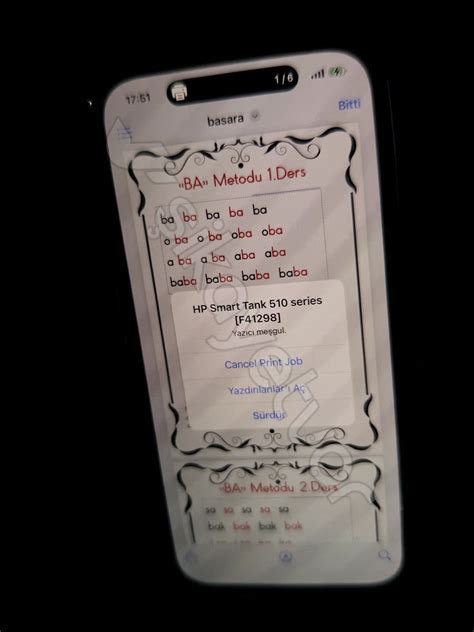 17:51
1/6
Bitti
basara
«BA» Metodu 1.Ders
ba ba ba ba ba
o ba o ba oba oba
a ba a ba aba aba
baba baba baba baba
HP Smart Tank 510 series
[F41298]
Yazıcı meşgul.
Cancel Print Job
Yazdırılanlar'ı Aç
Sürdür
«BA» Metodu 2.Ders
sa sa sa sa sa
bak bak bak bak
şikayetvar